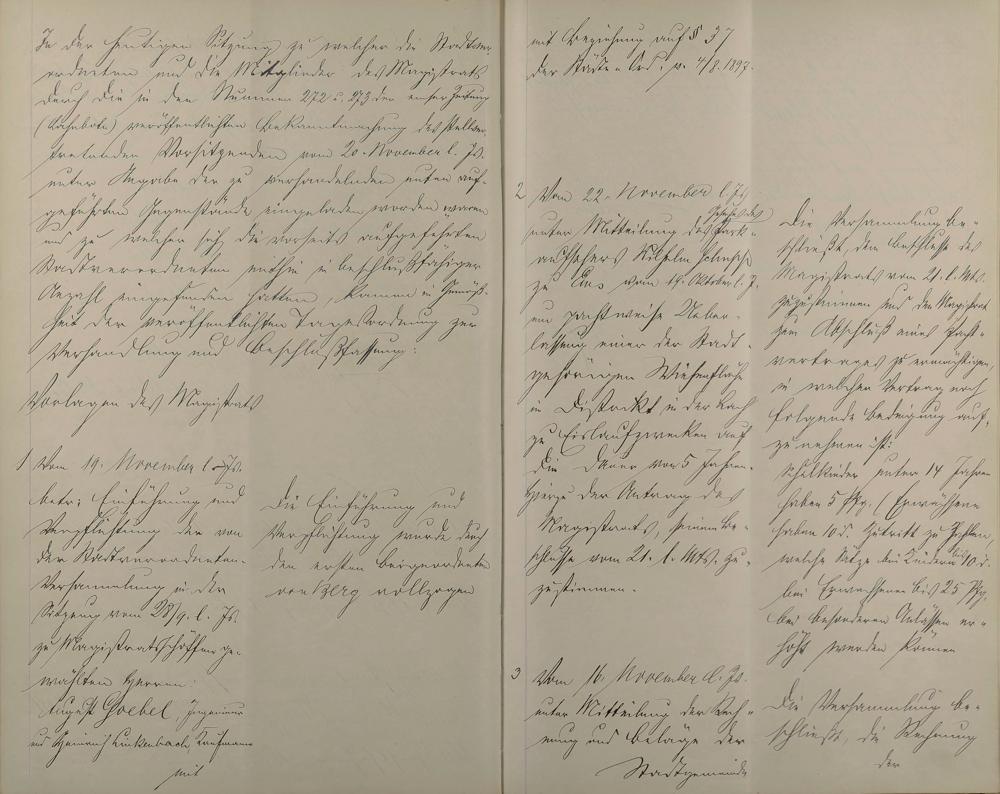 In der heutigen Sitzung zu welcher die Stadtver-
ordneten und die Mitglieder des Magistrats
durch die in den Nummern 272 u. 273 der Emser Zeitung
(Lahnbote) veröffentlichten Bekanntmachung des stellver-
tretenden Vorsitzenden vom 20. November l. Js.
unter Angabe der zu verhandelnden unten auf-
geführten Gegenstände eingeladen worden waren
und zu welcher sich die vorseits aufgeführten
Stadtverordneten mithin in beschlußfähiger
Anzahl eingefunden hatten, kamen in Gemäß-
heit der veröffentlichten Tagesordnung zur
Verhandlung und Beschlußfassung:
Vorlagen des Magistrats
1 Vom 19. November l. Js.
betr: Einführung und
Verpflichtung der von
der Stadtverordneten-
Versammlung in der
Sitzung vom 28/9. l. Js.
zu Magistratsschöffen ge-
wählten Herren:
August Goebel, Ingenieur
und Heinrich Linkenbach, Kaufmann
mit
Die Einführung und
Verpflichtung wurde durch
den ersten Beigeordneten
von Berg vollzogen
mit Beziehung auf § 37
der Städte-Ord. v. 4/8. 1897.
2 Vom 22. November l. Js.
unter Mitteilung des Gesuches des Park-
aufsehers Wilhelm
zu Ems vom 19. Oktober l. J.
um pachtweise Ueber-
lassung einer der Stadt-
gehörigen Wiesenfläche
in Distrikt in der Bach
zu Eislaufzwecken auf
die Dauer von 5 Jahren.
Hierzu der Antrag des
Magistrats, seinem Be-
schlusse vom 21. l. Mts. zu-
zustimmen.
Die Versammlung be-
schließt dem Beschlusse des
Magistrats vom 21. l. Mts.
zuzustimmen und den Magistrat
zum Abschluß eines Pacht-
vertrages zu ermächtigen,
in welchen Vertrag noch
folgende Bedingung auf-
zunehmen ist:
Schulkinder unter 14 Jahren
haben 5 Pfg. (Erwachsene
haben 10 d. Zutritt zu zahlen,
welche Sätze bei Kindern bis 10 d.
bei Erwachsenen bis 25 Pfg.
bei besonderen Anlässen er-
höht werden können
3 Vom 16. November l. Js.
unter Mitteilung der Rech-
nung und Beläge der
Stadtgemeinde
Die Versammlung be-
schließt, die Rechnung
der